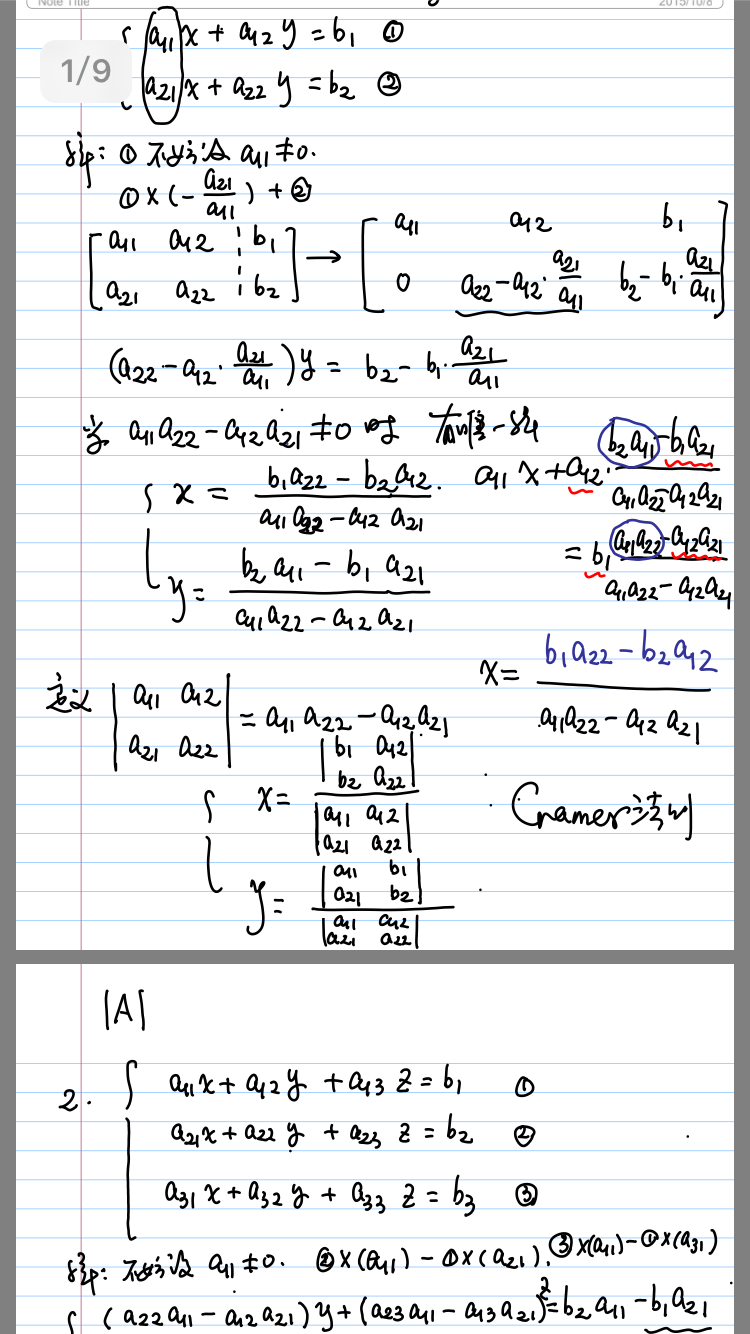 Note Title
2015/10/8
a₁₁x + a₁₂y = b₁ ①
1/9
a₂₁x + a₂₂y = b₂ ②
解: ① 不妨设 a₁₁ ≠ 0.
① × (-a₂₁/a₁₁) + ②
[a₁₁ a₁₂ ¦ b₁; a₂₁ a₂₂ ¦ b₂] → [a₁₁ a₁₂ b₁; 0 a₂₂-a₁₂·a₂₁/a₁₁ b₂-b₁·a₂₁/a₁₁]
(a₂₂-a₁₂·a₂₁/a₁₁)y = b₂-b₁·a₂₁/a₁₁
当 a₁₁a₂₂-a₁₂a₂₁ ≠ 0 时 有唯一解
{ x = (b₁a₂₂-b₂a₁₂)/(a₁₁a₂₂-a₁₂a₂₁).
y = (b₂a₁₁-b₁a₂₁)/(a₁₁a₂₂-a₁₂a₂₁)
a₁₁x+a₁₂·(b₂a₁₁-b₁a₂₁)/(a₁₁a₂₂-a₁₂a₂₁)
= b₁(a₁₁a₂₂-a₁₂a₂₁)/(a₁₁a₂₂-a₁₂a₂₁)
x = (b₁a₂₂-b₂a₁₂)/(a₁₁a₂₂-a₁₂a₂₁)
定义 |a₁₁ a₁₂; a₂₁ a₂₂| = a₁₁a₂₂-a₁₂a₂₁
{ x = |b₁ a₁₂; b₂ a₂₂| / |a₁₁ a₁₂; a₂₁ a₂₂|
Cramer法则
y = |a₁₁ b₁; a₂₁ b₂| / |a₁₁ a₁₂; a₂₁ a₂₂|
|A|
2. { a₁₁x + a₁₂y + a₁₃z = b₁ ①
a₂₁x + a₂₂y + a₂₃z = b₂ ②
a₃₁x + a₃₂y + a₃₃z = b₃ ③
解: 不妨设 a₁₁ ≠ 0. ②×(a₁₁) - ①×(a₂₁), ③×(a₁₁) - ①×(a₃₁)
{ (a₂₂a₁₁-a₁₂a₂₁)y + (a₂₃a₁₁-a₁₃a₂₁)z = b₂a₁₁-b₁a₂₁